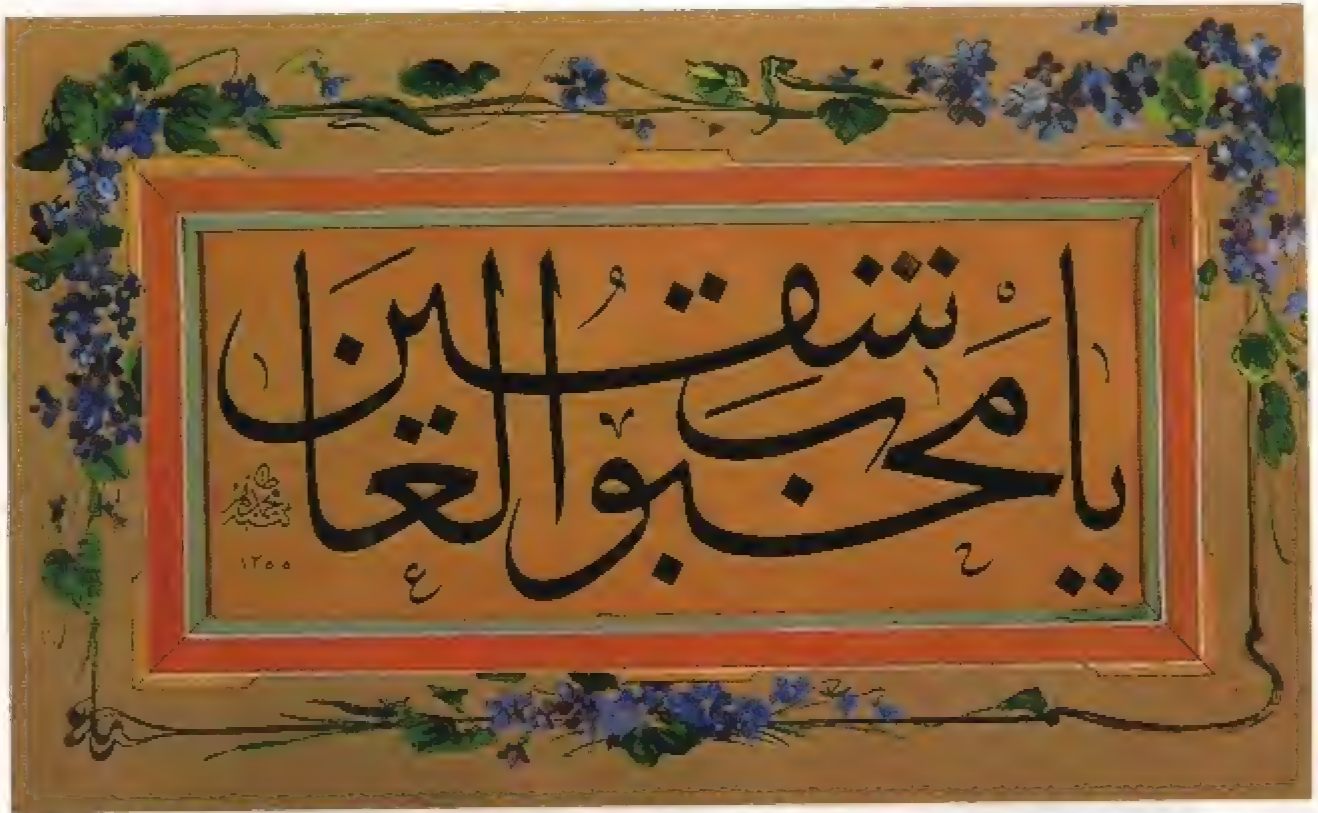 يا محبوب العاشقين
١٢٥٥